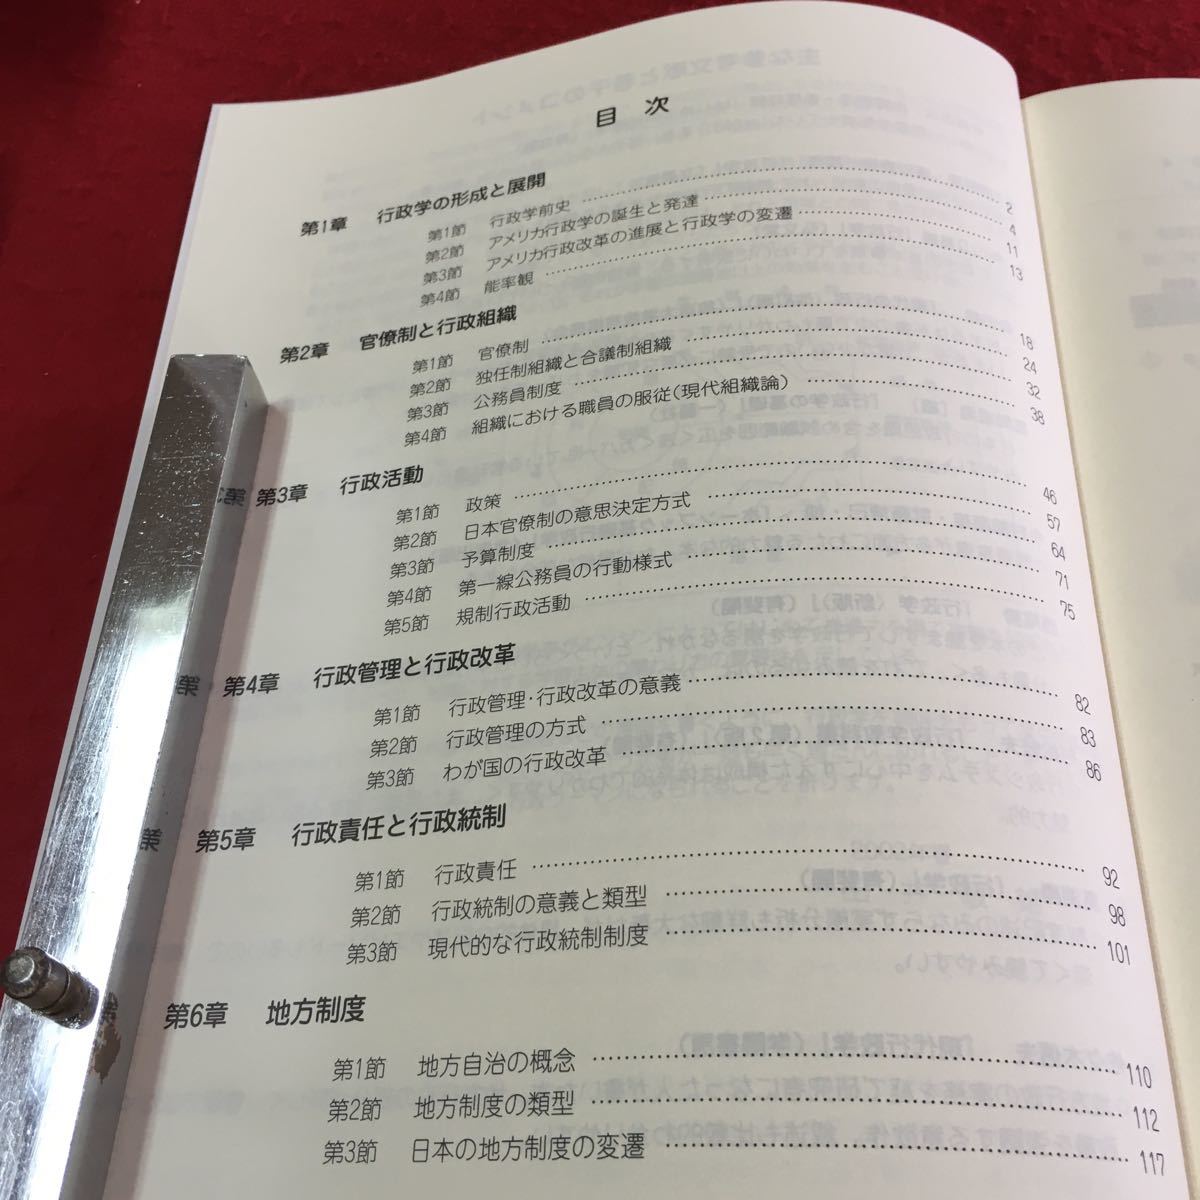 目 次
第1章 行政学の形成と展開
第1節 行政学前史 2
第2節 アメリカ行政学の誕生と発達 4
第3節 アメリカ行政改革の進展と行政学の変遷 11
第4節 能率観 13
第2章 官僚制と行政組織
第1節 官僚制 18
第2節 独任制組織と合議制組織 24
第3節 公務員制度 32
第4節 組織における職員の服従(現代組織論) 38
第3章 行政活動
第1節 政策 46
第2節 日本官僚制の意思決定方式 57
第3節 予算制度 64
第4節 第一線公務員の行動様式 71
第5節 規制行政活動 75
第4章 行政管理と行政改革
第1節 行政管理・行政改革の意義 82
第2節 行政管理の方式 83
第3節 わが国の行政改革 86
第5章 行政責任と行政統制
第1節 行政責任 92
第2節 行政統制の意義と類型 98
第3節 現代的な行政統制制度 101
第6章 地方制度
第1節 地方自治の概念 110
第2節 地方制度の類型 112
第3節 日本の地方制度の変遷 117